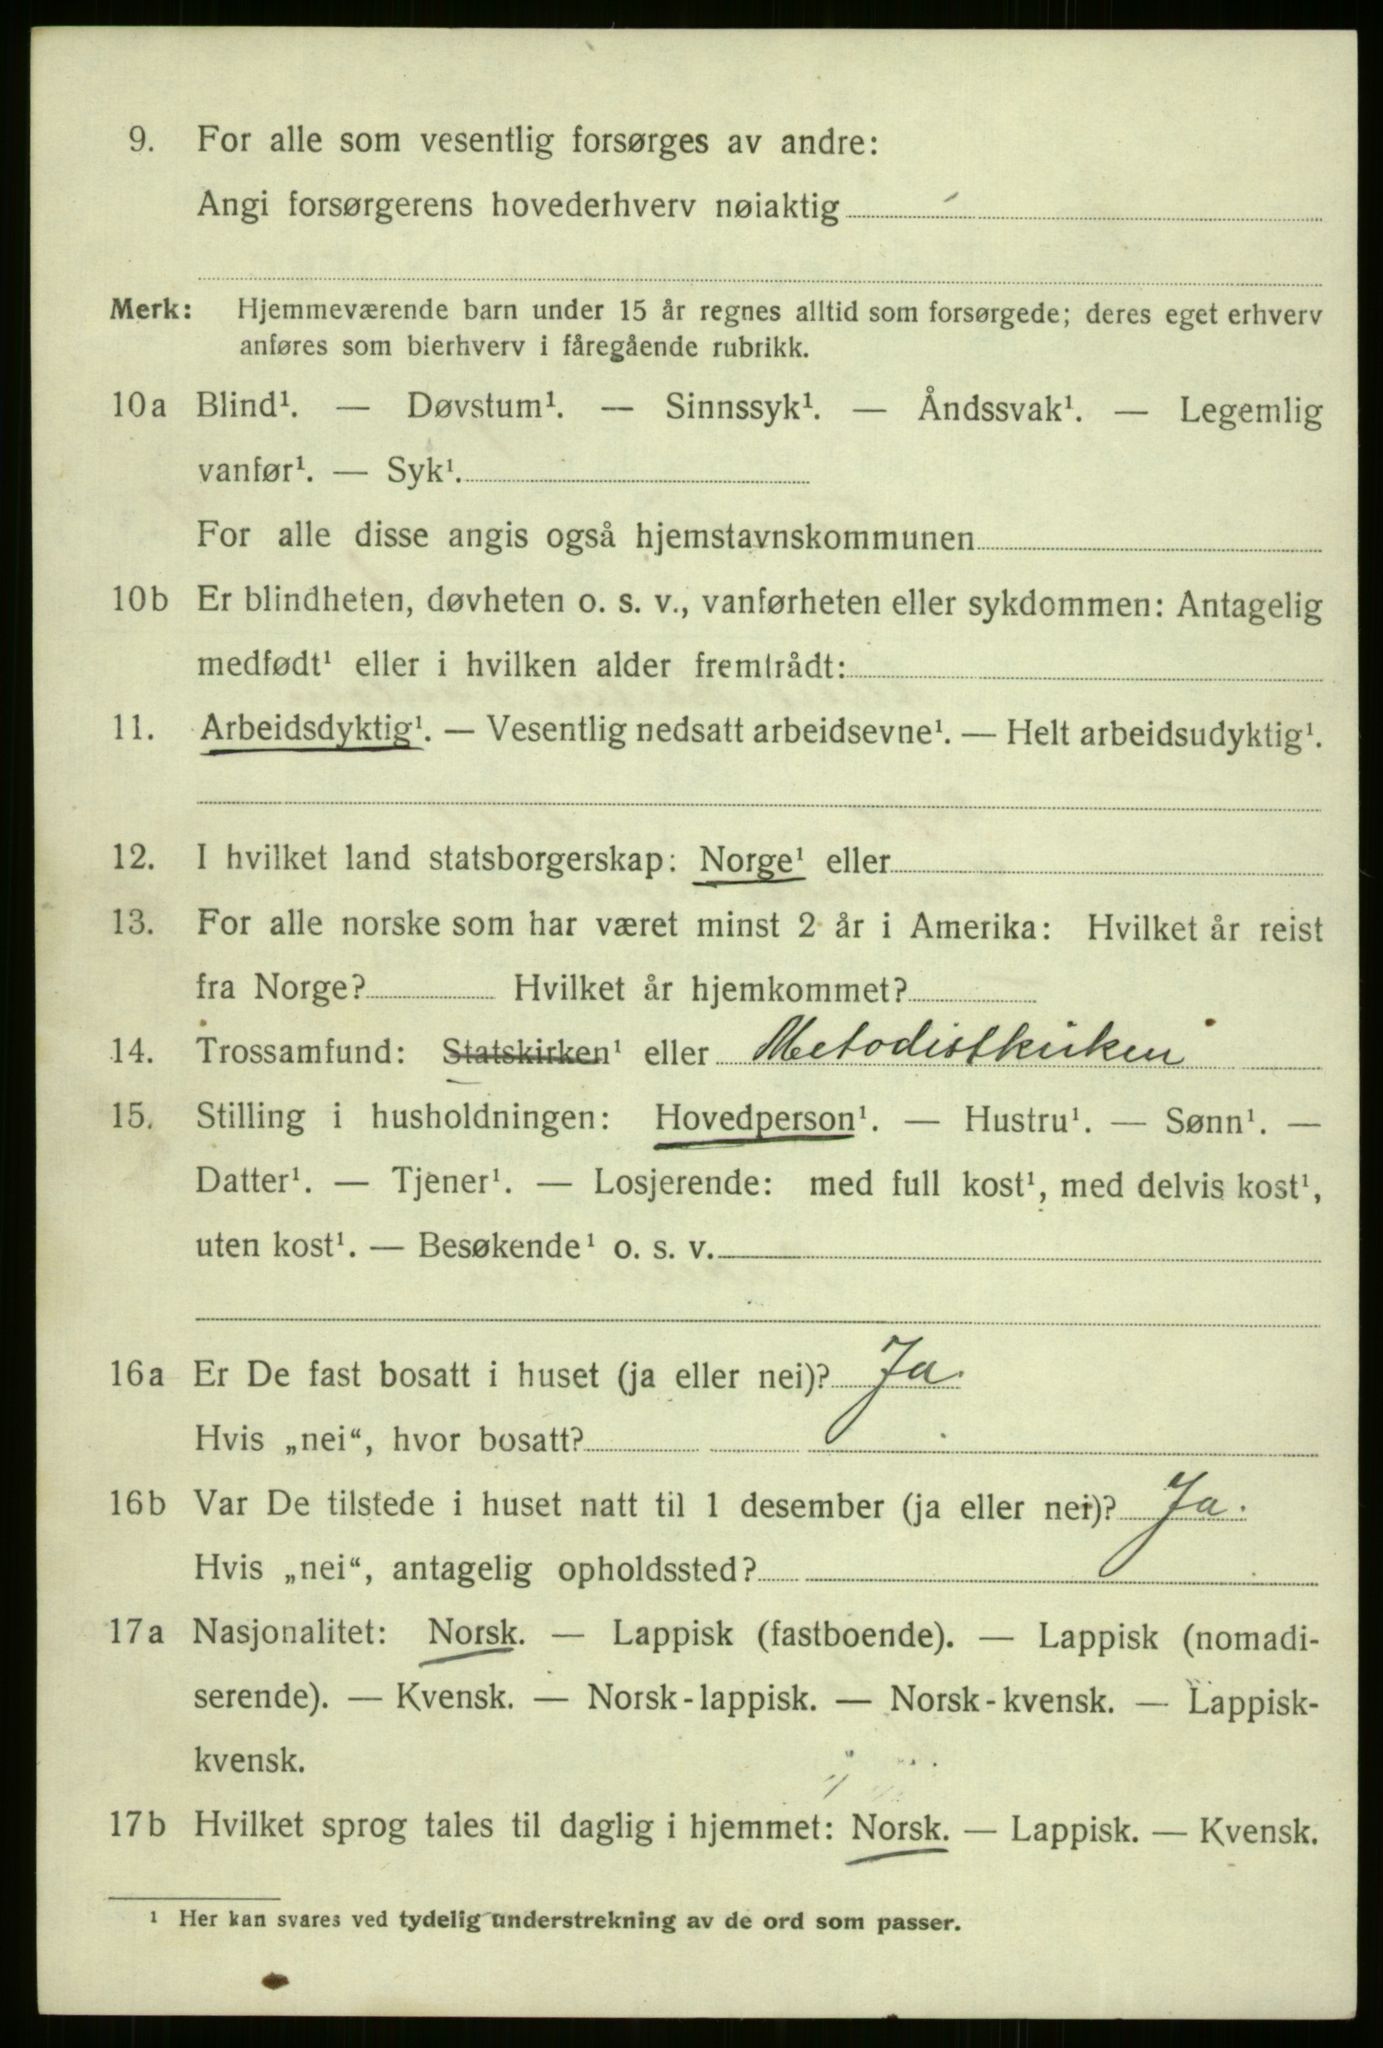 9. For alle som vesentlig forsørges av andre:
Angi forsørgerens hovederhverv nøiaktig
Merk: Hjemmeværende barn under 15 år regnes alltid som forsørgede; deres eget erhverv
anføres som bierhverv i fåregående rubrikk.
10a Blind¹. — Døvstum¹. — Sinnssyk¹. — Åndssvak¹. — Legemlig
vanfør¹. — Syk¹.
For alle disse angis også hjemstavnskommunen
10b Er blindheten, døvheten o. s. v., vanførheten eller sykdommen: Antagelig
medfødt¹ eller i hvilken alder fremtrådt:
11. Arbeidsdyktig¹. — Vesentlig nedsatt arbeidsevne¹. — Helt arbeidsudyktig¹.
12. I hvilket land statsborgerskap: Norge¹ eller
13. For alle norske som har været minst 2 år i Amerika: Hvilket år reist
fra Norge? Hvilket år hjemkommet?
14. Trossamfund: Statskirken¹ eller Metodistkirken
15. Stilling i husholdningen: Hovedperson¹. — Hustru¹. — Sønn¹. —
Datter¹. — Tjener¹. — Losjerende: med full kost¹, med delvis kost¹,
uten kost¹. — Besøkende¹ o. s. v.
16a Er De fast bosatt i huset (ja eller nei)? Ja.
Hvis „nei“, hvor bosatt?
16b Var De tilstede i huset natt til 1 desember (ja eller nei)? Ja.
Hvis „nei“, antagelig opholdssted?
17a Nasjonalitet: Norsk. — Lappisk (fastboende). — Lappisk (nomadi-
serende). — Kvensk. — Norsk-lappisk. — Norsk-kvensk. — Lappisk-
kvensk.
17b Hvilket sprog tales til daglig i hjemmet: Norsk. — Lappisk. — Kvensk.
¹ Her kan svares ved tydelig understrekning av de ord som passer.